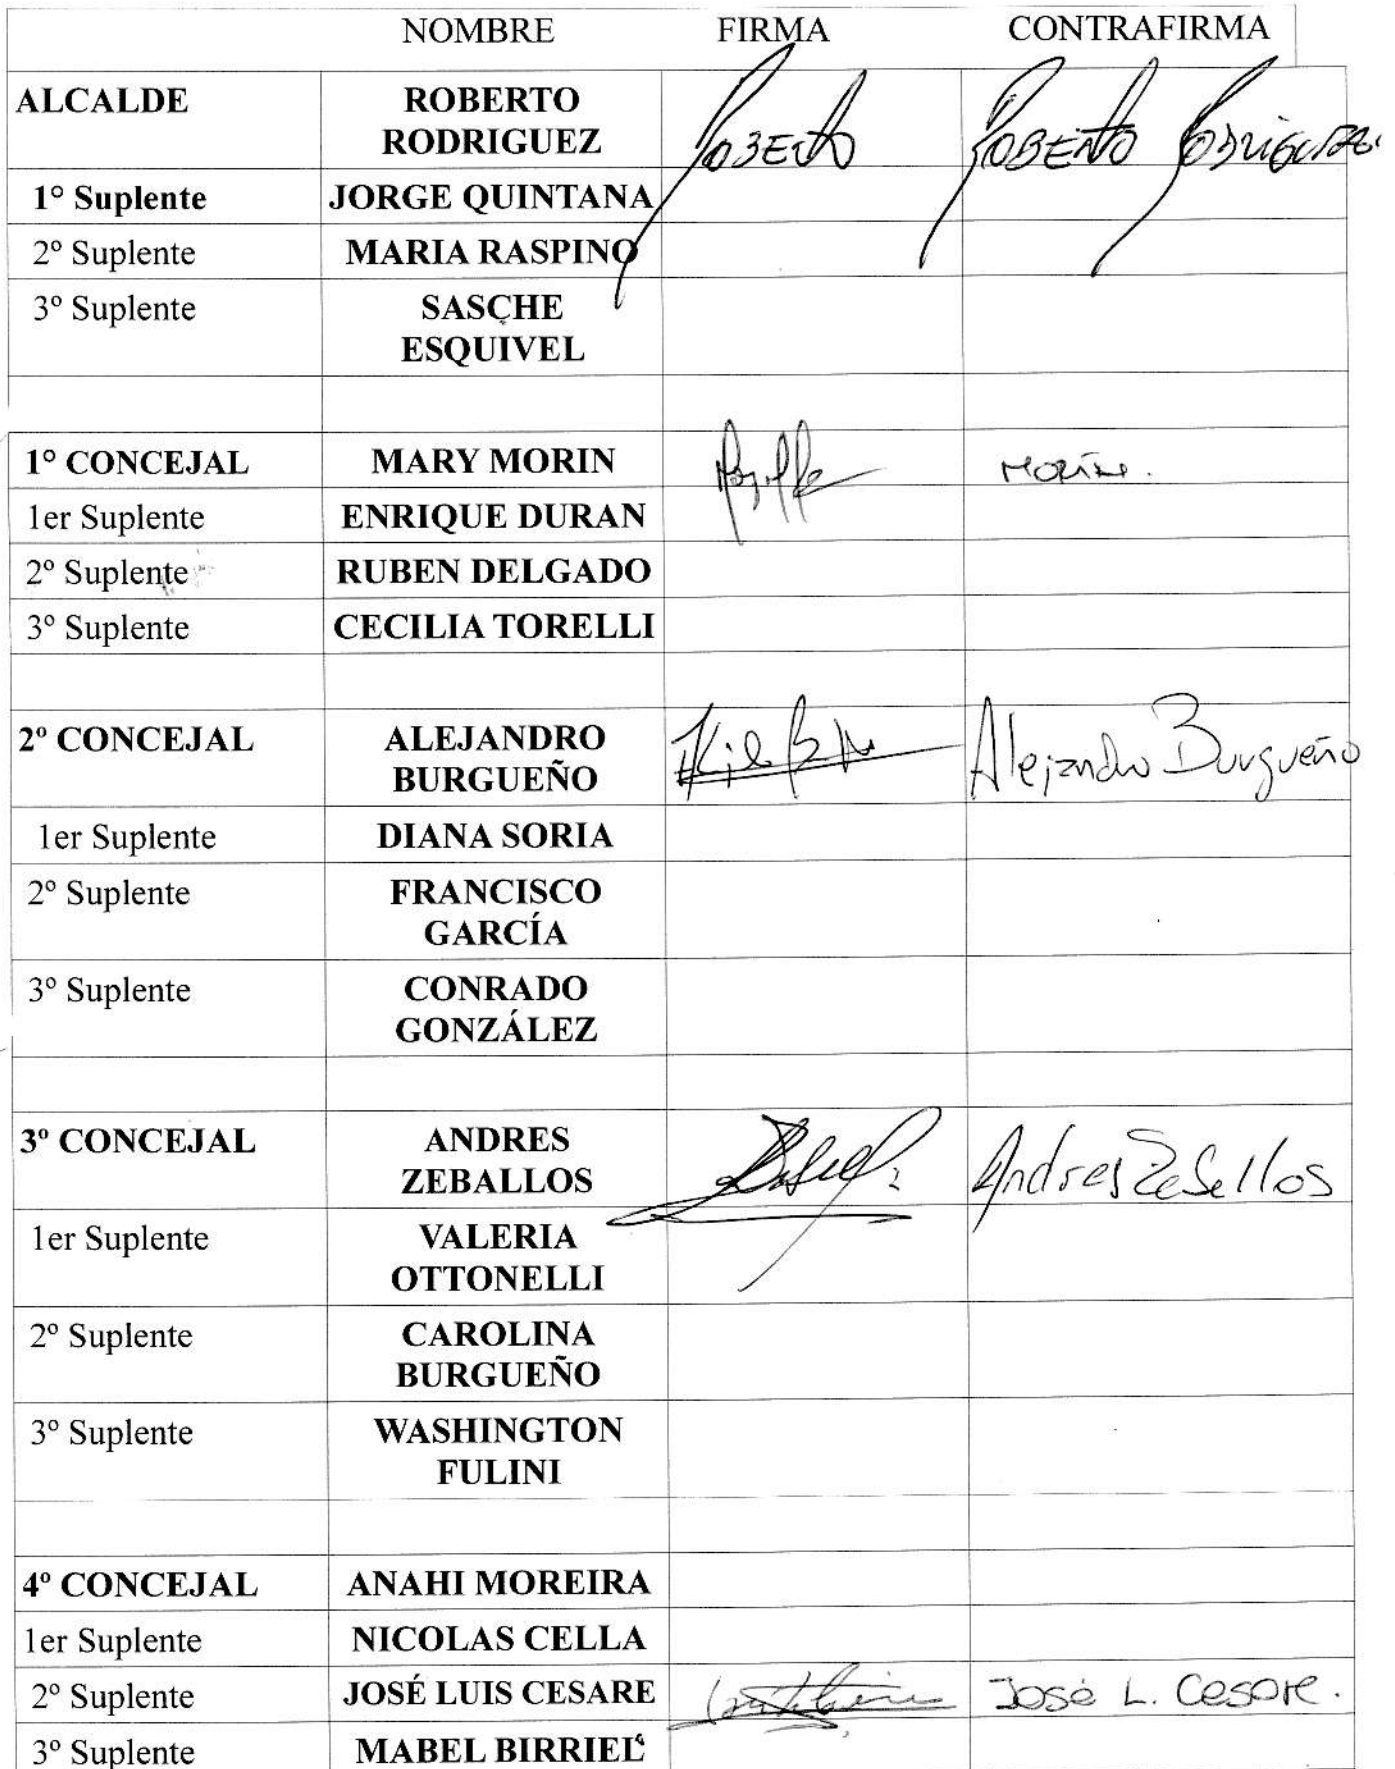 NOMBRE FIRMA CONTRAFIRMA
ALCALDE ROBERTO RODRIGUEZ ROBERTO ROBERTO RODRIGUEZ
1° Suplente JORGE QUINTANA
2º Suplente MARIA RASPINO
3º Suplente SASCHE ESQUIVEL
1° CONCEJAL MARY MORIN
1er Suplente ENRIQUE DURAN
2º Suplente RUBEN DELGADO
3º Suplente CECILIA TORELLI
2º CONCEJAL ALEJANDRO BURGUEÑO Alejandro Burgueño
1er Suplente DIANA SORIA
2º Suplente FRANCISCO GARCÍA
3º Suplente CONRADO GONZÁLEZ
3º CONCEJAL ANDRES ZEBALLOS Andres Zeballos
1er Suplente VALERIA OTTONELLI
2º Suplente CAROLINA BURGUEÑO
3º Suplente WASHINGTON FULINI
4º CONCEJAL ANAHI MOREIRA
1er Suplente NICOLAS CELLA
2º Suplente JOSÉ LUIS CESARE José L. Cesare.
3º Suplente MABEL BIRRIEL